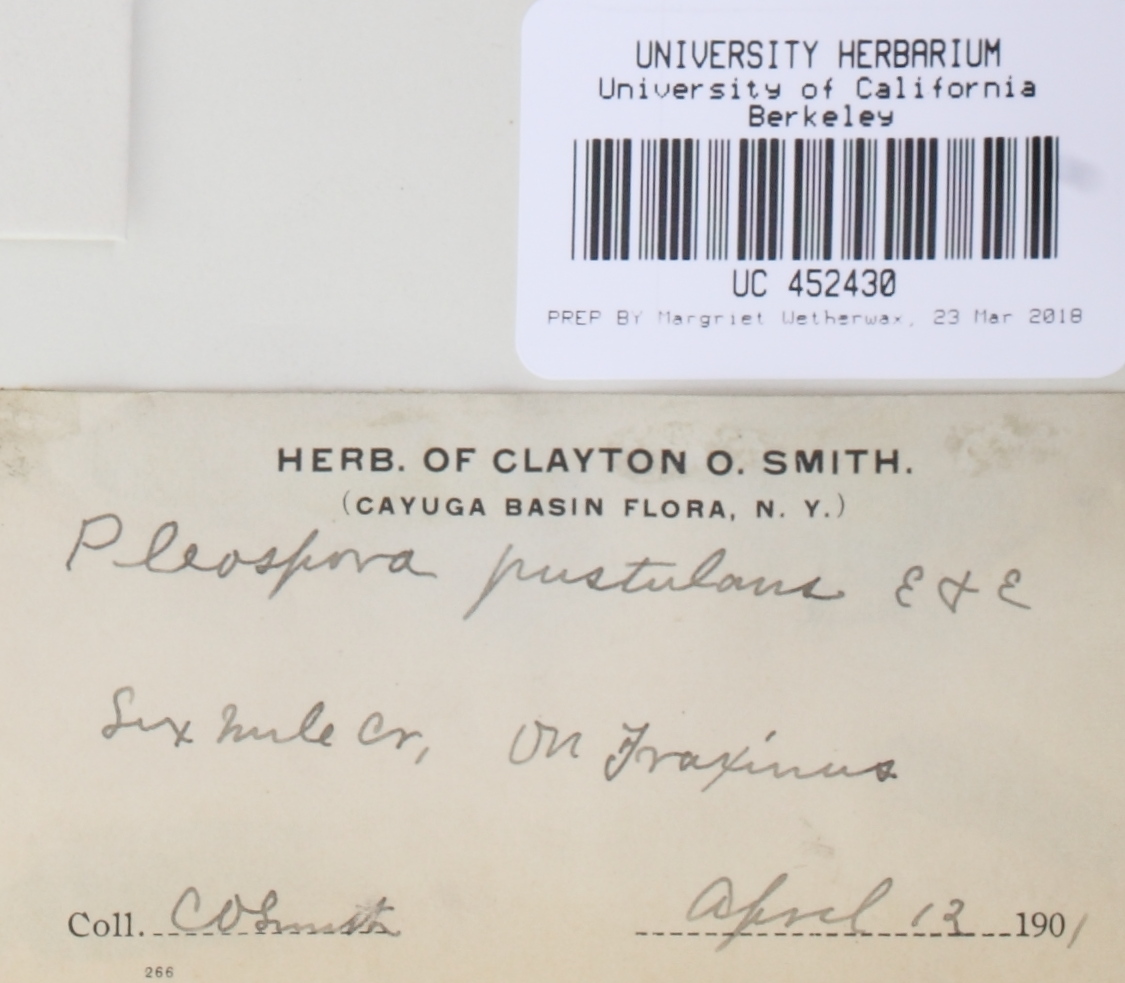 UNIVERSITY HERBARIUM
University of California
Berkeley
UC 452430
PREP BY Margriet Wetherwax, 23 Mar 2018
HERB. OF CLAYTON O. SMITH.
(CAYUGA BASIN FLORA, N. Y.)
Pleospora pustulans E & E
Six Mile Cr, On Fraxinus
Coll. C O Smith April 13 1901
266